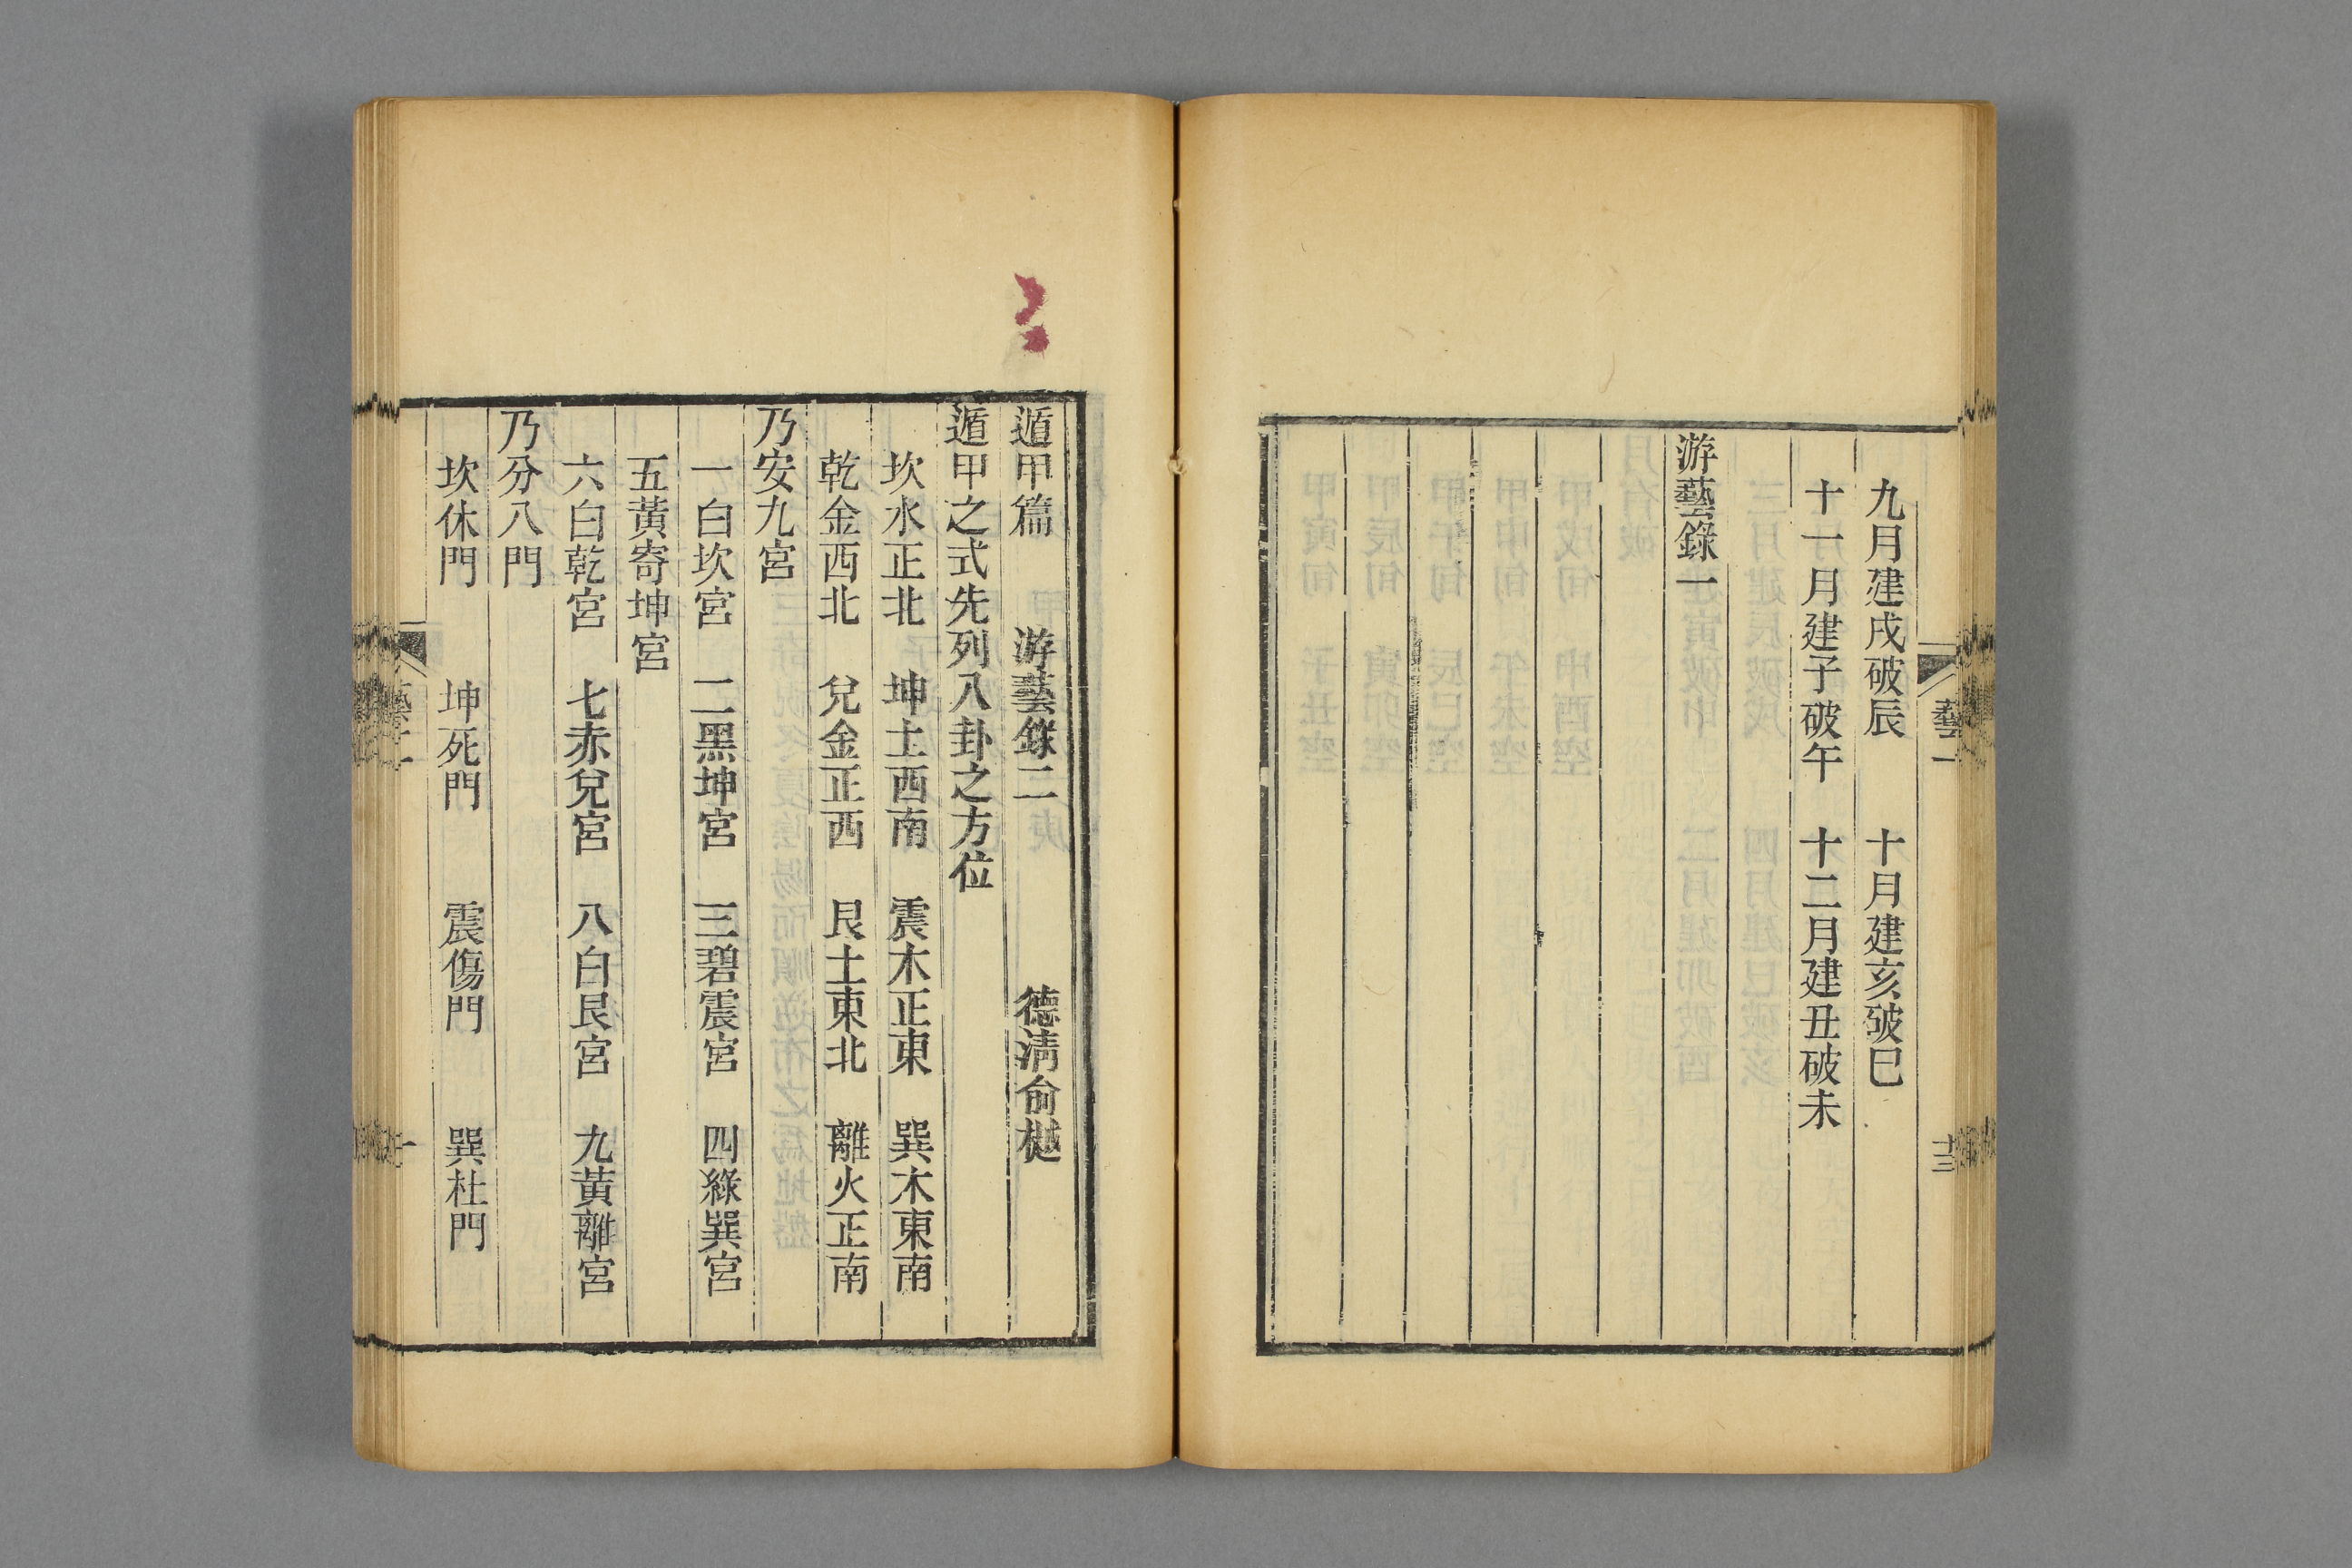 藝一
十三
九月建戌破辰　十月建亥破巳
十一月建子破午　十二月建丑破未
游藝錄一
遁甲篇　游藝錄二　德淸俞樾
遁甲之式先列八卦之方位
坎水正北　坤土西南　震木正東　巽木東南
乾金西北　兌金正西　艮土東北　離火正南
乃安九宮
一白坎宮　二黑坤宮　三碧震宮　四綠巽宮
五黃寄坤宮
六白乾宮　七赤兌宮　八白艮宮　九黃離宮
乃分八門
坎休門　坤死門　震傷門　巽杜門